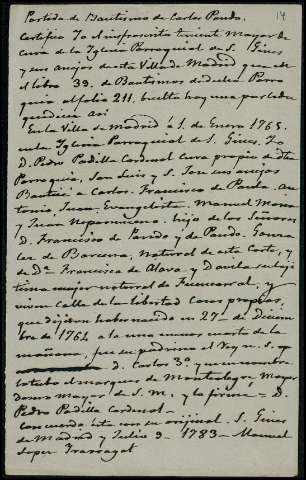 14
Partida de Bautismo de Carlos Pardo.
Certifico Yo el infrascrito teniente mayor de
cura de la Iglesia Parroquial de S. Gines
y sus anejos de esta Villa de Madrid que en
el libro 33. de Bautismos de dicha Parro
quia al folio 211. buelta hay una partida
que dice asi
En la Villa de Madrid á 5. de Enero 1765.
en la Iglesia Parroquial de S. Gines. Yo
D. Pedro Padilla Cardenal Cura propio de dha
Parroquia, San Luis y S. Jose sus anejos
Bauticé a Carlos. Francisco de Paula. An
tonio, Juan. Evangelista. Manuel Maria
y Juan Nepomuceno. hijo de los Señores
D. Francisco de Pardo y de Pardo. Gonza
lez de Barcena, Natural de esta Corte, y
de Dª Francisca de Alava y Davila su legi
tima mujer natural de Fuencarral. y
viven calle de la libertad casas propias,
que dijeron haber nacido en 27 de Diciem
bre de 1764 a la una menos cuarto de la
mañana, fue su padrino el Rey n. S.
D. Carlos 3º y en su nombre
lo tubo el marques de Montealegre, Mayor
domo mayor de S. M. y lo firme = D.
Pedro Padilla Cardenal =
Concuerda esta con su original. S. Gines
de Madrid y Julio 9 - 1783 = Manuel
Lopez